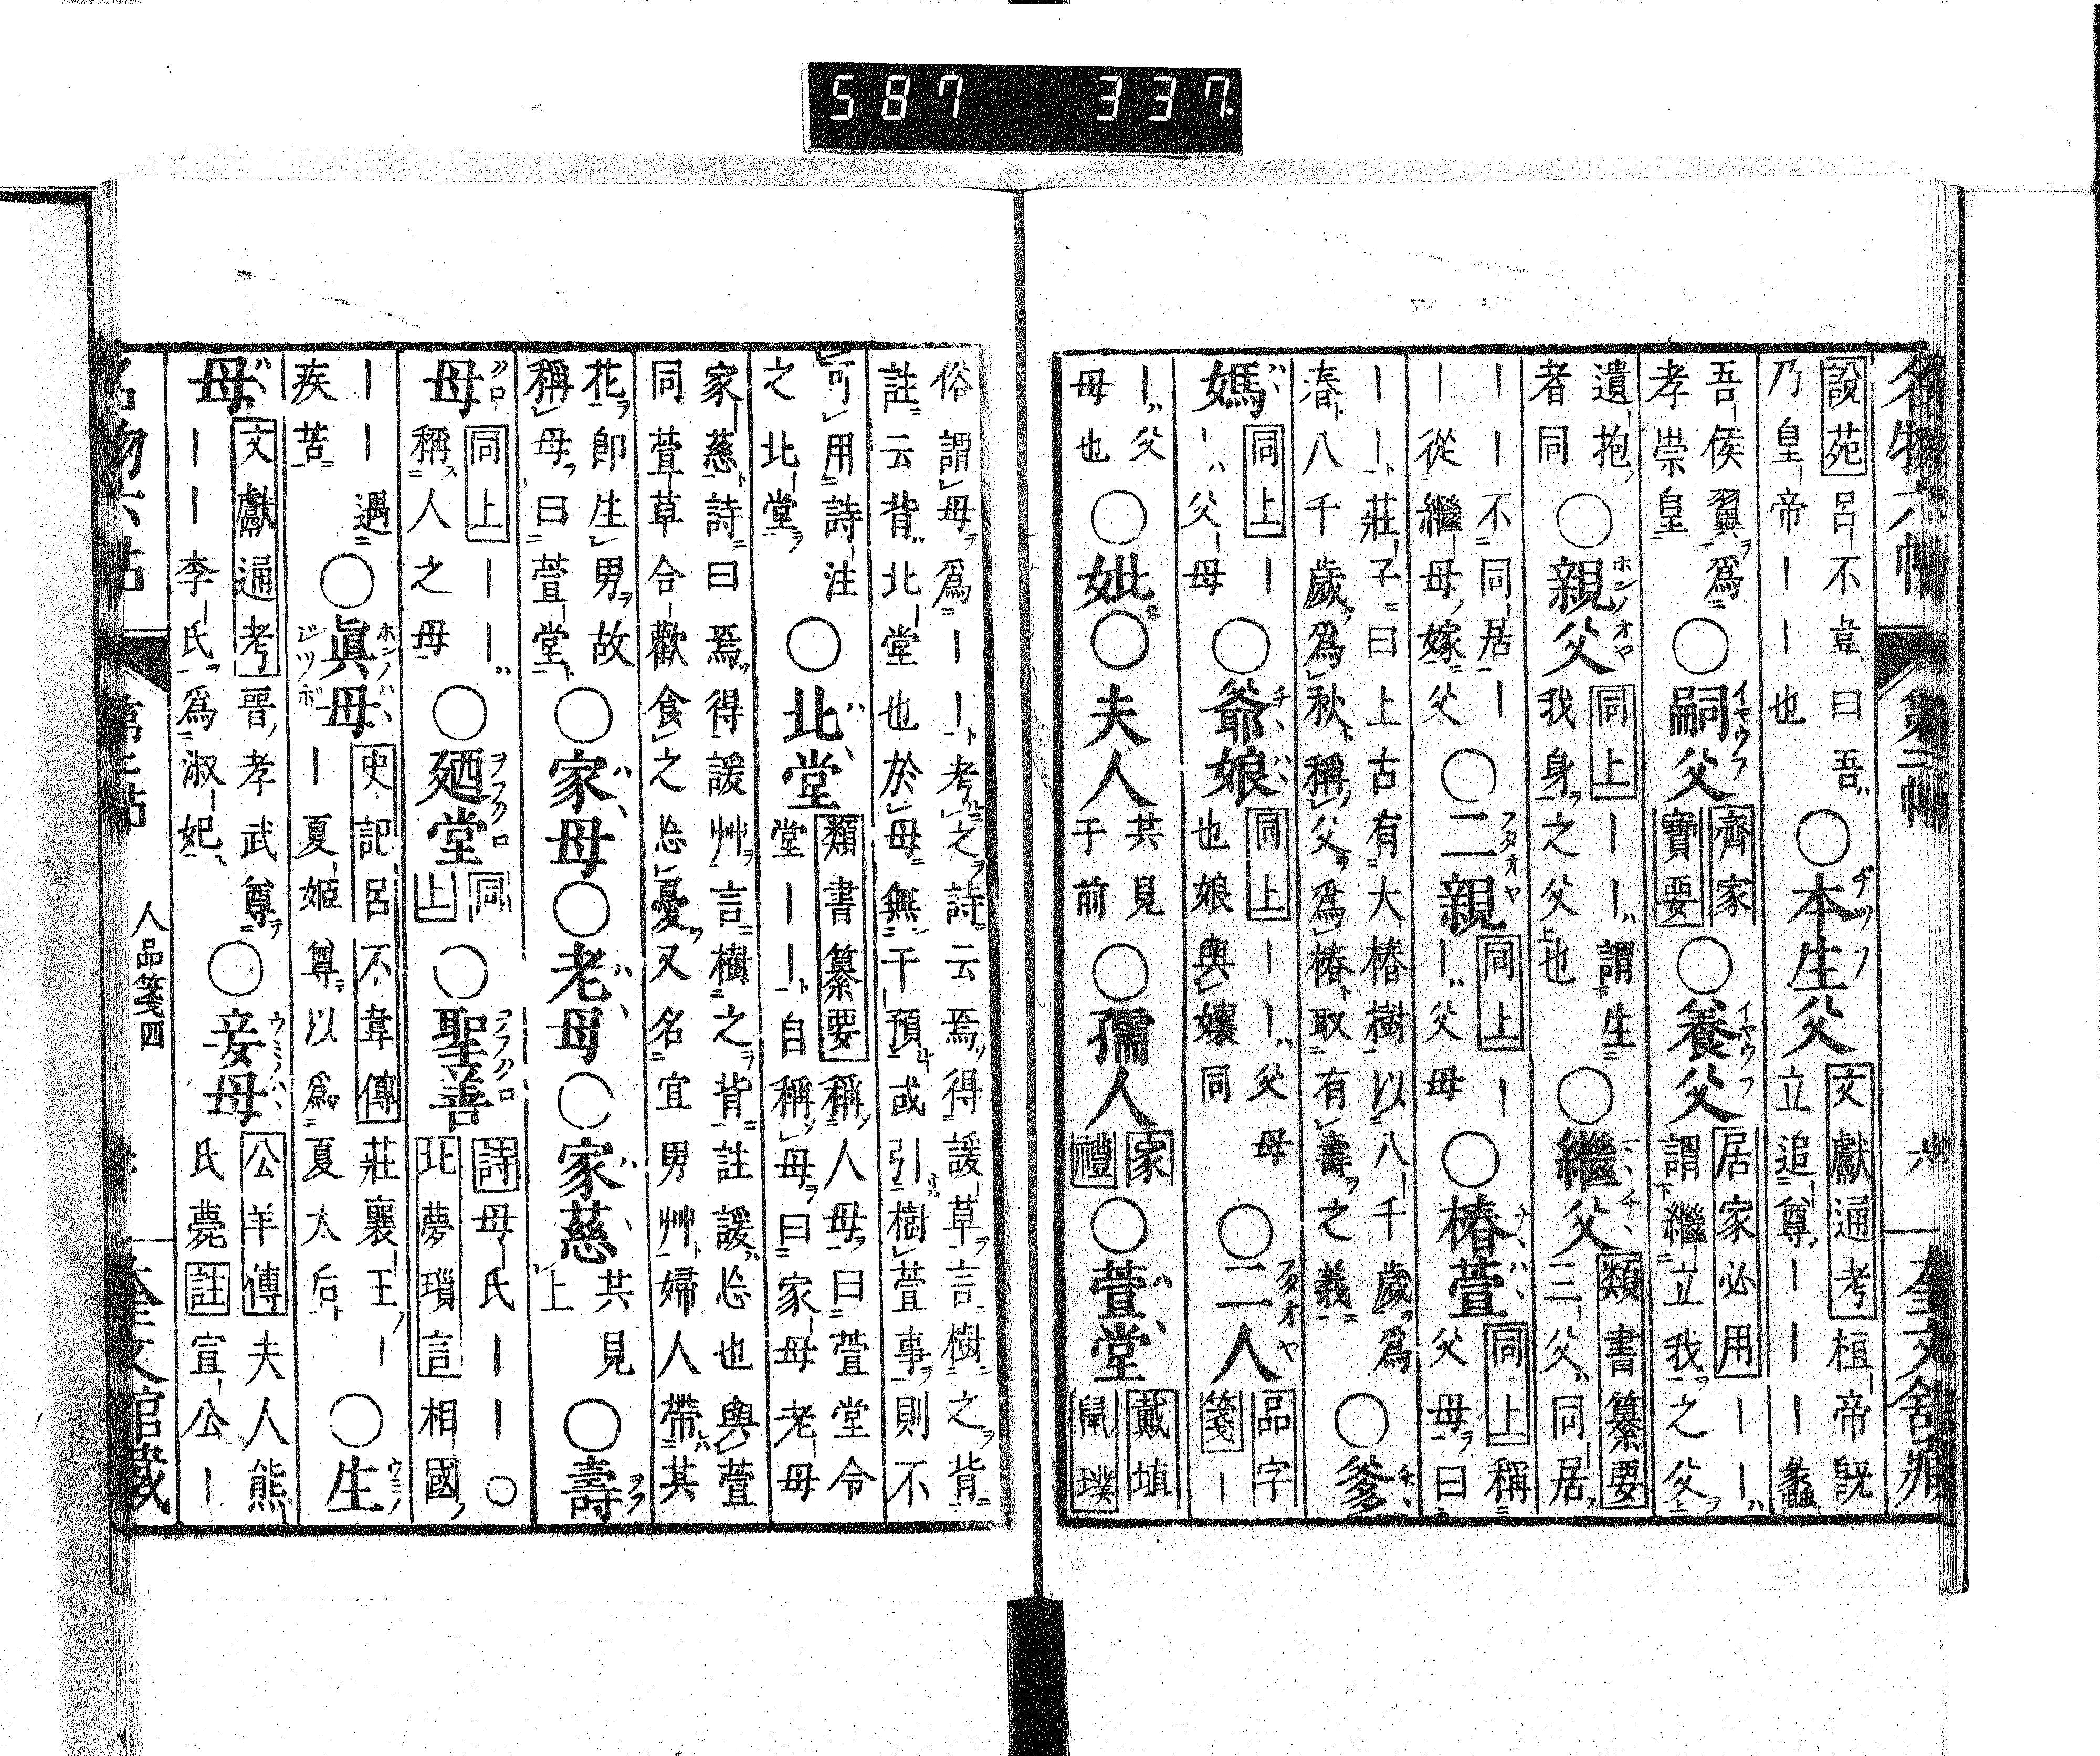 名物六帖 第二帖 六 奎文舘藏
說苑呂不韋曰吾乃皇帝ーー也○本生父文獻通考桓帝既立追尊ーーー蠡
吾侯翼爲孝崇皇○嗣父齊家寶要○養父居家必用ーー謂繼立我之父
遺抱者同○親父同上ーー謂生我身之父也○繼父類書纂要三父同居
ーー不同居ーー從繼母嫁父○二親同上ーー父母○椿萱同上稱父母曰
ーー莊子曰上古有大椿樹以八千歲爲春八千歲爲秋稱父爲椿取有壽之義○爹
媽同上ーー父母○爺娘同上ーー父母也娘與孃同○二人品字箋ー
ー父母也○妣○夫人共見于前○孺人家禮○萱堂戴埴鼠璞
俗謂母爲ーー考之詩云焉得諼草言樹之背註云背北堂也於母無干預或引樹萱事則不
可用詩注之北堂○北堂類書纂要稱人母曰萱堂令堂ーー自稱母曰家母老母
家慈詩曰焉得諼艸言樹之背註諼忘也與萱同萱草合歡食之忘憂又名宜男艸婦人帶其
花即生男故稱母曰萱堂○家母○老母○家慈共見上○壽
母同上ーー稱人之母○廼堂同上○聖善詩母氏ーー○北夢瑣言相國
ーー遇疾苦○眞母史記呂不韋傳莊襄王ーー夏姬尊以爲夏太后○生
母文獻通考晉孝武尊ーー李氏爲淑妃○妾母公羊傳夫人熊氏薨註宣公ー
名物六帖 第二帖 人品箋四 奎文館藏
587 337